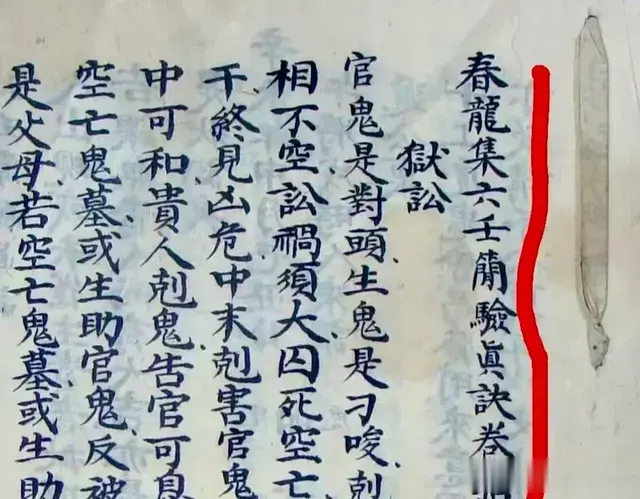 春龍集六壬簡驗眞訣卷
獄訟
官鬼是對頭生鬼是刁唆剋
相不空訟禍須大囚死空亡
干終見凶危中末剋害官鬼
中可和貴人剋鬼告官可息
空亡鬼墓或生助官鬼反被
是父母若空亡鬼墓或生助